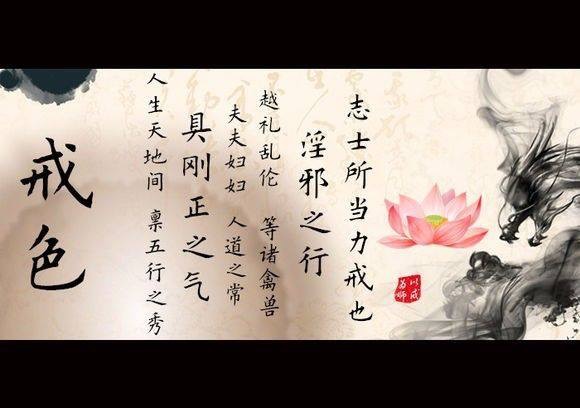 戒色
人生天地间 禀五行之秀
具刚正之气
夫夫妇妇 人道之常
越礼乱伦 等诸禽兽
淫邪之行
志士所当力戒也
以戒
为师